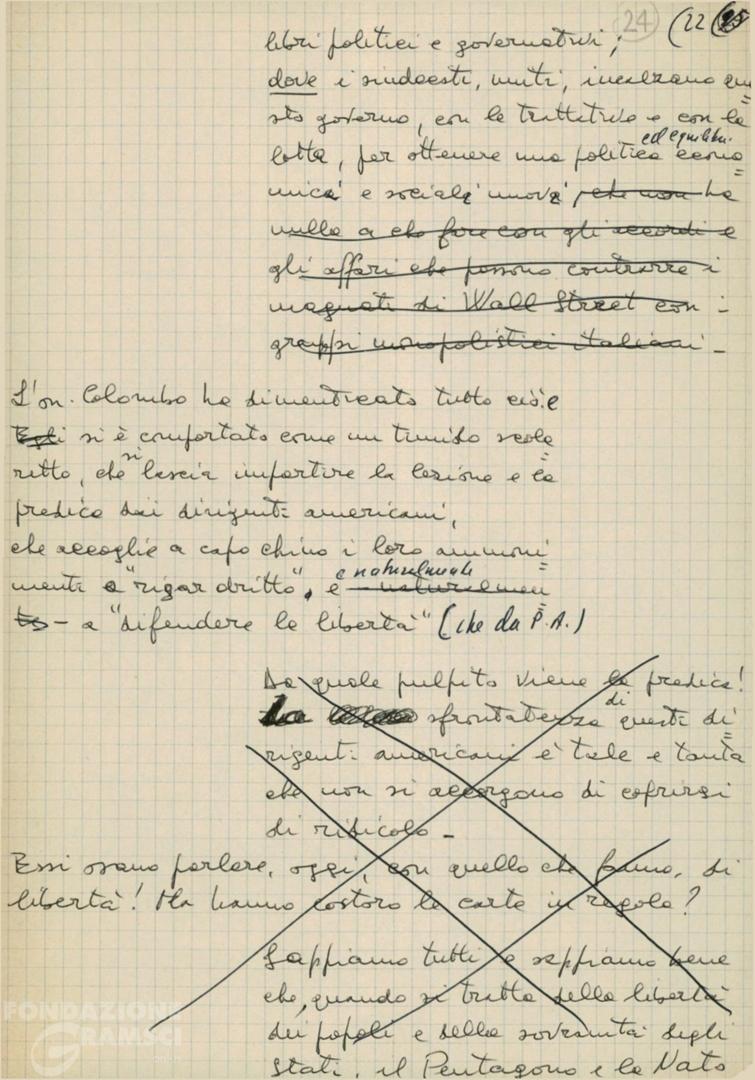 24 (22 25
libri politici e governativi;
dove i sindacati, uniti, incalzano que=
sto governo, con le trattative e con la
lotta, per ottenere una politica econo=
ed equilibri
mica e sociale nuova, che non ha
nulla a che fare con gli accordi e
gli affari che possono contrarre i
magnati di Wall Street con i
gruppi monopolistici italiani -
L'on. Colombo ha dimenticato tutto ciò e
Egli si è comportato come un timido scola=
retto, che si lascia impartire la lezione e la
predica dai dirigenti americani,
che accoglie a capo chino i loro ammoni=
menti a "rigar dritto", e naturalmen=
e naturalmente
te - a "difendere le libertà" (che da P.A.)
Da quale pulpito viene la predica!
La sfrontatezza di questi di=
rigenti americani è tale e tanta
che non si accorgono di coprirsi
di ridicolo -
Essi osano parlare, oggi, con quello che fanno, di
libertà! Ma hanno costoro le carte in regola?
Sappiamo tutti e sappiamo bene
che, quando si tratta della libertà
dei popoli e della sovranità degli
Stati, il Pentagono e la Nato
FONDAZIONE
GRAMSCI